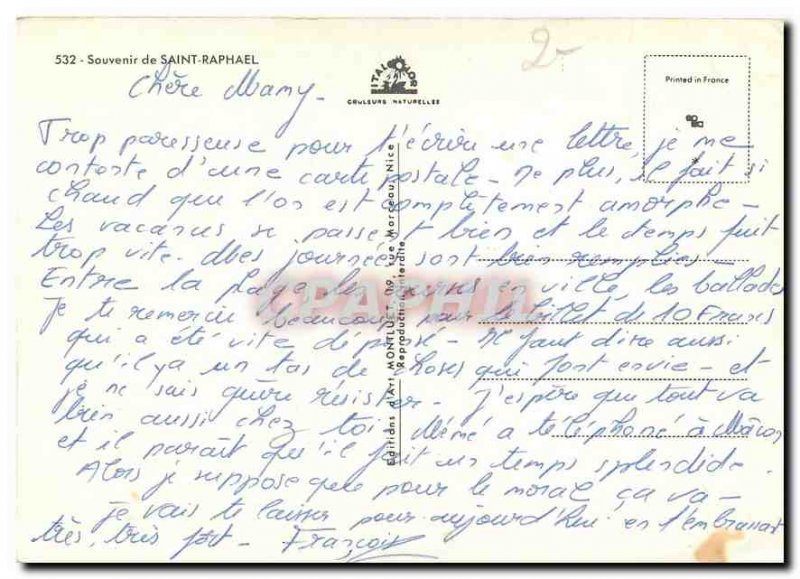 532 - Souvenir de SAINT-RAPHAEL
2-
ITALCOLOR
COULEURS NATURELLES
Printed in France
Chère Mamy -
Trop paresseuse pour t'écrire une lettre, je me
contente d'une carte postale - De plus, il fait si
chaud que l'on est complètement amorphe -
Les vacances se passent bien et le temps fuit
trop vite. Mes journées sont bien remplies -
Entre la plage les courses en ville, les ballades
Je te remercie beaucoup pour le billet de 10 Francs
qui a été vite dépensé - Il faut dire aussi
qu'il y a un tas de choses qui font envie - et
je ne sais guère résister - J'espère que tout va
bien aussi chez toi. Mémé a téléphoné à Mâcon
et il paraît qu'il fait un temps splendide.
Alors je suppose que pour le moral ça va -
je vais te laisser pour aujourd'hui en t'embrassant
très, très fort - Françoise
Editions d'Art MONTLUET, 119, rue Marceau, Nice
Reproduction interdite
CPAPHIL